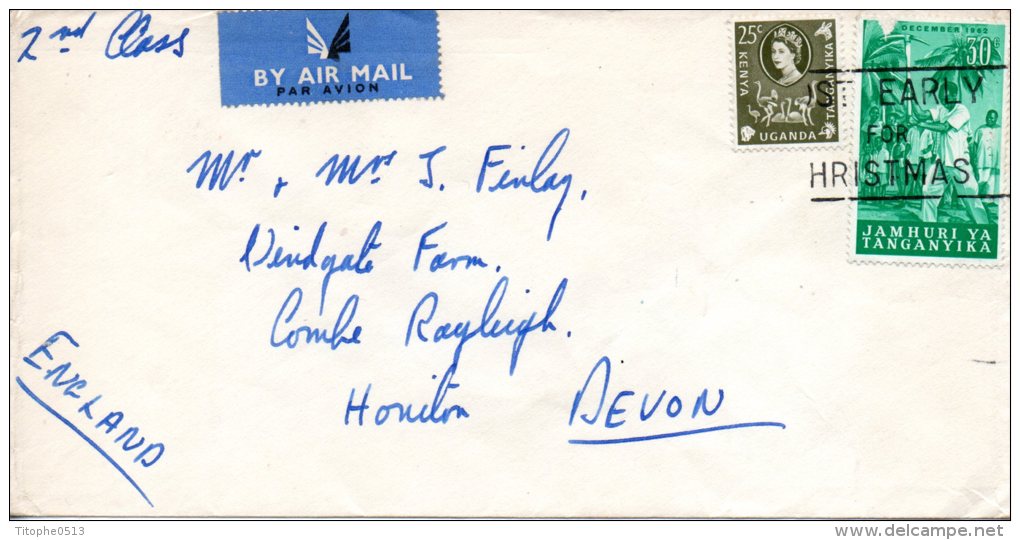 2nd Class
BY AIR MAIL
PAR AVION
25c
KENYA
TANGANYIKA
UGANDA
DECEMBER 1962
30c
JAMHURI YA
TANGANYIKA
EARLY
FOR
HRISTMAS
Mr & Mrs J. Finlay,
Windgate Farm,
Combe Rayleigh.
Honiton DEVON
ENGLAND
Titophe0513
www.delcampe.net